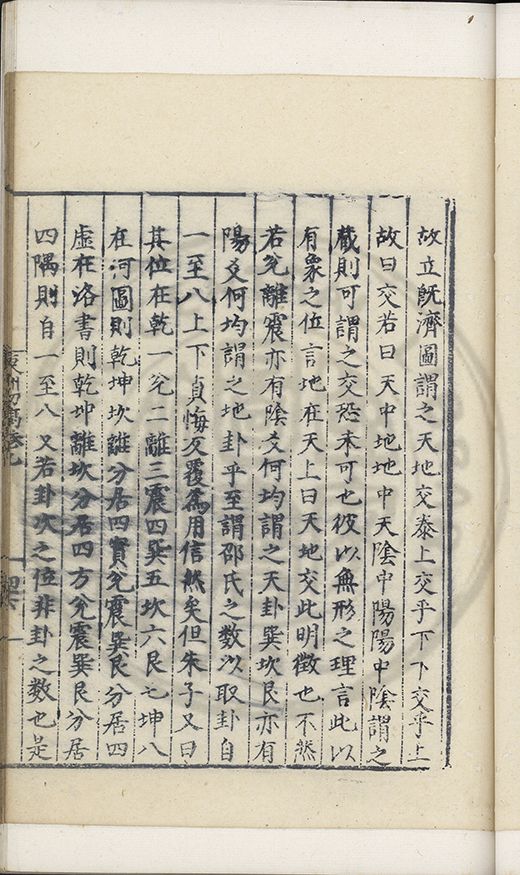 故立旣濟圖謂之天地交泰上交乎下下交乎上
故曰交若曰天中地地中天陰中陽陽中陰謂之
藏則可謂之交恐未可也彼以無形之理言此以
有象之位言地在天上曰天地交此明徵也不然
若兊離震亦有陰爻何均謂之天卦巽坎艮亦有
陽爻何均謂之地卦乎至謂邵氏之數以取卦自
一至八上下貞悔反覆爲用信然矣但朱子又曰
其位在乾一兊二離三震四巽五坎六艮七坤八
在河圖則乾坤坎離分居四實兊震巽艮分居四
虛在洛書則乾坤離坎分居四方兊震巽艮分居
四隅則自一至八又若卦次之位非卦之數也是